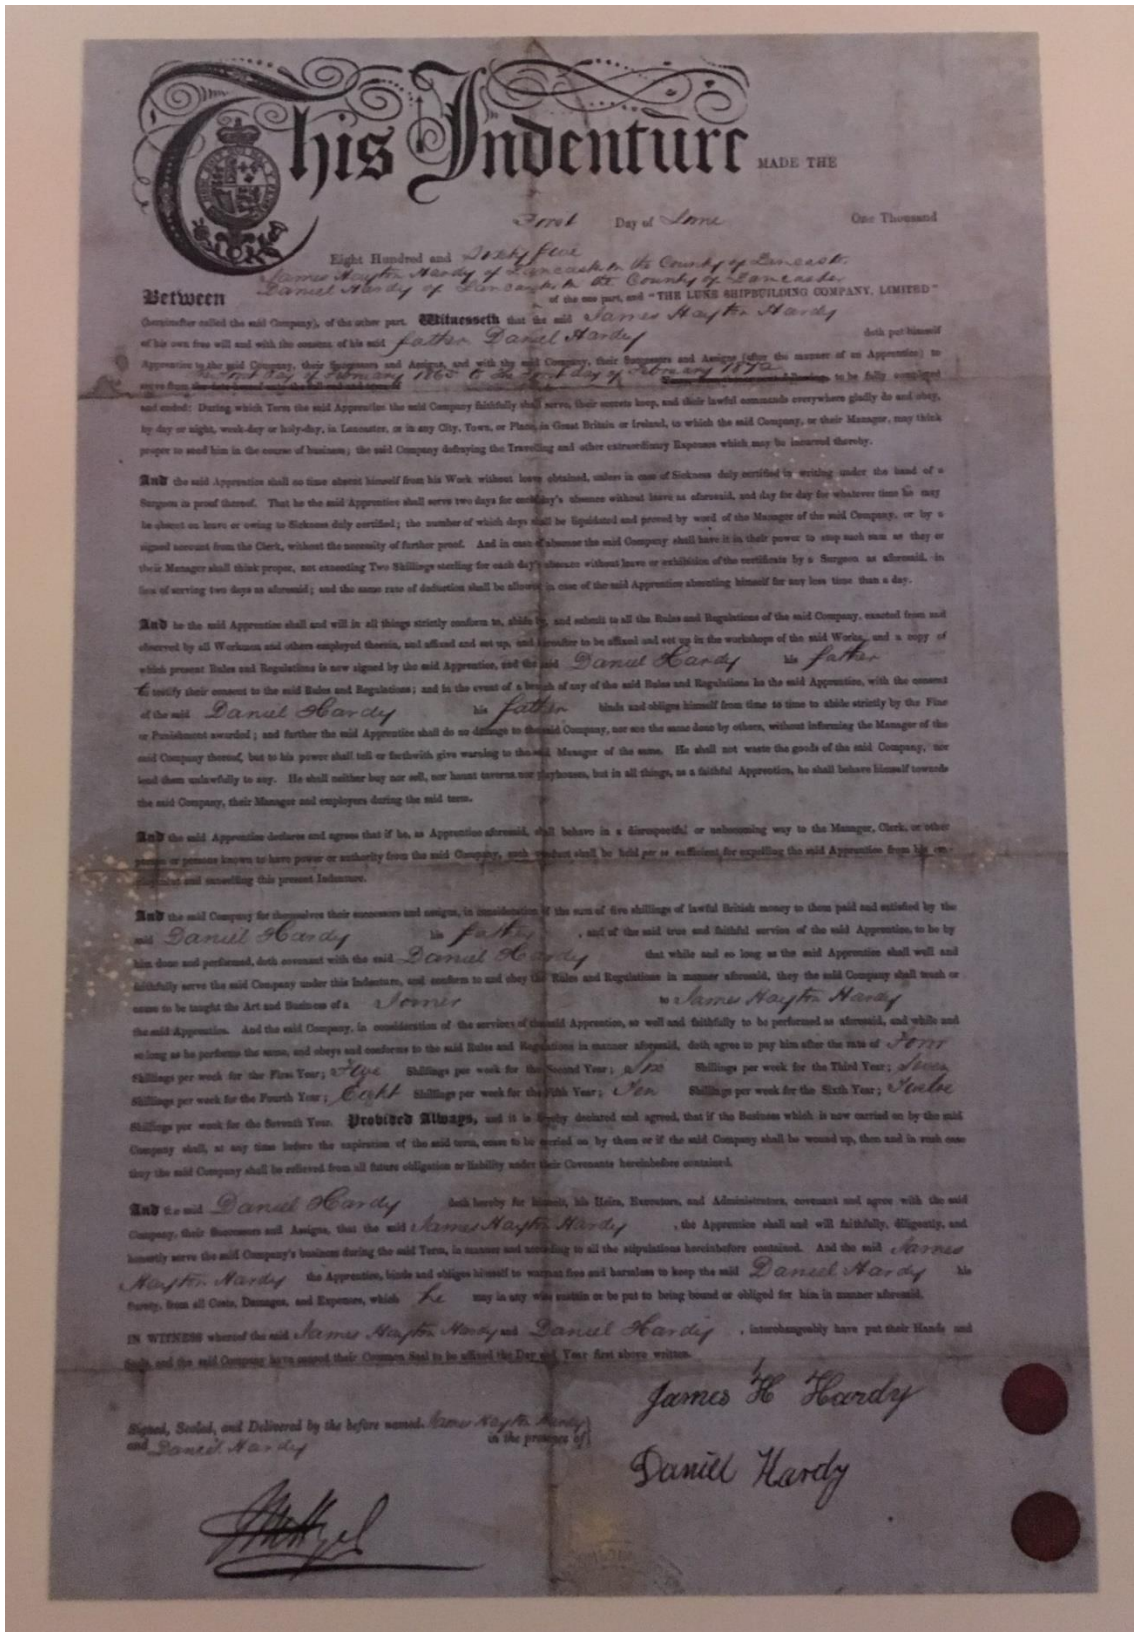 This Indenture MADE THE
First Day of June One Thousand
Eight Hundred and Sixty five
James Hayton Hardy of Lancaster in the County of Lancaster
Daniel Hardy of Lancaster in the County of Lancaster
Between of the one part, and "THE LUNE SHIPBUILDING COMPANY, LIMITED"
(hereinafter called the said Company), of the other part. Witnesseth that the said James Hayton Hardy
of his own free will and with the consent of his said father Daniel Hardy doth put himself
Apprentice to the said Company, their Successors and Assigns, and with the said Company, their Successors and Assigns (after the manner of an Apprentice) to
day of February 1865 to the First day of February 1872
serve from to be fully completed
and ended: During which Term the said Apprentice the said Company faithfully shall serve, their secrets keep, and their lawful commands everywhere gladly do and obey,
by day or night, week-day or holy-day, in Lancaster, or in any City, Town, or Place, in Great Britain or Ireland, to which the said Company, or their Manager, may think
proper to send him in the course of business; the said Company defraying the Travelling and other extraordinary Expenses which may be incurred thereby.
And the said Apprentice shall no time absent himself from his Work without leave obtained, unless in case of Sickness duly certified in writing under the hand of a
Surgeon in proof thereof. That he the said Apprentice shall serve two days for each day's absence without leave as aforesaid, and day for day for whatever time he may
be absent on leave or owing to Sickness duly certified; the number of which days shall be liquidated and proved by word of the Manager of the said Company, or by a
signed account from the Clerk, without the necessity of further proof. And in case of absence the said Company shall have it in their power to stop such sum as they or
their Manager shall think proper, not exceeding Two Shillings sterling for each day's absence without leave or exhibition of the certificate by a Surgeon as aforesaid, in
lieu of serving two days as aforesaid; and the same rate of deduction shall be allowed in case of the said Apprentice absenting himself for any less time than a day.
And he the said Apprentice shall and will in all things strictly conform to, abide by, and submit to all the Rules and Regulations of the said Company, exacted from and
observed by all Workmen and others employed therein, and affixed and set up, and hereafter to be affixed and set up in the workshops of the said Works, and a copy of
which present Rules and Regulations is now signed by the said Apprentice, and the said Daniel Hardy his father
to testify their consent to the said Rules and Regulations; and in the event of a breach of any of the said Rules and Regulations he the said Apprentice, with the consent
of the said Daniel Hardy his father binds and obliges himself from time to time to abide strictly by the Fine
or Punishment awarded; and further the said Apprentice shall do no damage to the said Company, nor see the same done by others, without informing the Manager of the
said Company thereof, but to his power shall tell or forthwith give warning to the said Manager of the same. He shall not waste the goods of the said Company, nor
lend them unlawfully to any. He shall neither buy nor sell, nor haunt taverns nor playhouses, but in all things, as a faithful Apprentice, he shall behave himself towards
the said Company, their Manager and employers during the said term.
And the said Apprentice declares and agrees that if he, as Apprentice aforesaid, shall behave in a disrespectful or unbecoming way to the Manager, Clerk, or other
person or persons known to have power or authority from the said Company, such conduct shall be held per se sufficient for expelling the said Apprentice from his
and cancelling this present Indenture.
And the said Company for themselves their successors and assigns, in consideration of the sum of five shillings of lawful British money to them paid and satisfied by the
said Daniel Hardy his father, and of the said true and faithful service of the said Apprentice, to be by
him done and performed, doth covenant with the said Daniel Hardy that while and so long as the said Apprentice shall well and
faithfully serve the said Company under this Indenture, and conform to and obey the Rules and Regulations in manner aforesaid, they the said Company shall teach or
cause to be taught the Art and Business of a Joiner to James Hayton Hardy
the said Apprentice. And the said Company, in consideration of the services of the said Apprentice, so well and faithfully to be performed as aforesaid, and while and
so long as he performs the same, and obeys and conforms to the said Rules and Regulations in manner aforesaid, doth agree to pay him after the rate of Four
Shillings per week for the First Year; Five Shillings per week for the Second Year; Six Shillings per week for the Third Year; Seven
Shillings per week for the Fourth Year; Eight Shillings per week for the Fifth Year; Ten Shillings per week for the Sixth Year; Twelve
Shillings per week for the Seventh Year. Provided Always, and it is hereby declared and agreed, that if the Business which is now carried on by the said
Company shall, at any time before the expiration of the said term, cease to be carried on by them or if the said Company shall be wound up, then and in such case
they the said Company shall be relieved from all future obligation or liability under their Covenants hereinbefore contained.
And the said Daniel Hardy doth hereby for himself, his Heirs, Executors, and Administrators, covenant and agree with the said
Company, their Successors and Assigns, that the said James Hayton Hardy, the Apprentice shall and will faithfully, diligently, and
honestly serve the said Company's business during the said Term, in manner and according to all the stipulations hereinbefore contained. And the said James
Hayton Hardy the Apprentice, binds and obliges himself to warrant free and harmless to keep the said Daniel Hardy his
Surety, from all Costs, Damages, and Expenses, which he may in any wise sustain or be put to being bound or obliged for him in manner aforesaid.
IN WITNESS whereof the said James Hayton Hardy and Daniel Hardy, interchangeably have put their Hands and
Seals, and the said Company have caused their Common Seal to be affixed the Day and Year first above written.
James H Hardy
Signed, Sealed, and Delivered by the before named James Hayton Hardy
and Daniel Hardy in the presence of
Daniel Hardy